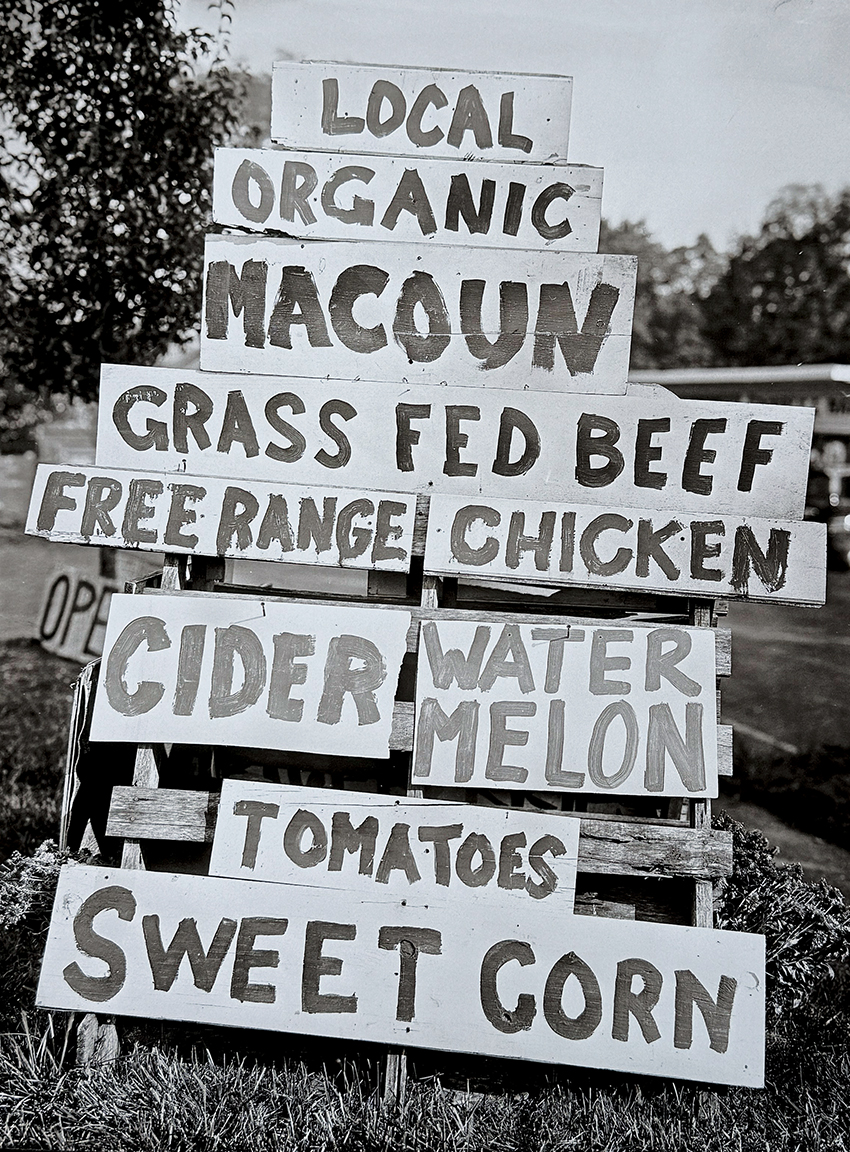 LOCAL
ORGANIC
MACOUN
GRASS FED BEEF
FREE RANGE CHICKEN
OPE
CIDER
WATER
MELON
TOMATOES
SWEET CORN